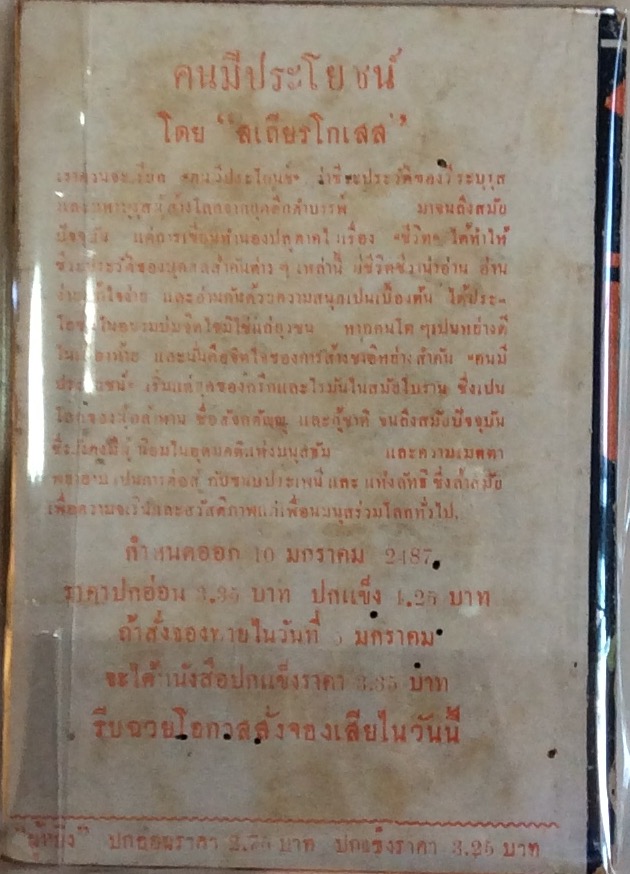 คนมีประโยชน์
โดย “สเถียรโกเสส”
เราควนจะเรียก “คนมีประโยชน์” ว่าชีวะประวัติของวีระบุรุส
และมหาบุรุสผู้ส้างโลกจากยุคดึกดำบรรพ์ มาจนถึงสมัย
ปัจจุบัน แต่การเขียนทำนองปลุตาคในเรื่อง “ชีวิต” ได้ทำไห้
ชีวะประวัติของบุคคลสำคันต่าง ๆ เหล่านี้ มีชีวิตชีวาน่าอ่าน อ่าน
ง่ายเข้าไจง่าย และอ่านกันด้วยความสนุกเปนเบื้องต้น ได้ประ-
โยชน์ในอบรมบ่มจิตใจมิใช่แก่ยุวชน หากคนโต ๆเปนหย่างดี
ในเบื้องท้าย และนั่นคือจิตใจของการส้างชาติหย่างสำคัน “คนมี
ประโยชน์” เริ่มแต่ยุคของกรีกและโรมันในสมัยโบราน ซึ่งเปน
โลกของ ซื่อสัจกตัญญู และกู้ชาติ จนถึงสมัยปัจจุบัน
ซึ่งยังคงมีผู้นิยมในอุดมคติแห่งมนุสธัม และความเมตตา
พยายามเปนการต่อสู้ กับขนบประเพนี และ แห่งลัทธิ ซึ่งล้ำสมัย
เพื่อความจเรินและสวัสดิภาพแก่เพื่อนมนุสร่วมโลกทั่วไป.
กำหนดออก 10 มกราคม 2487
ราคาปกอ่อน 3.35 บาท ปกแข็ง 4.25 บาท
ถ้าสั่งจองพายในวันที่ 5 มกราคม
จะได้หนังสือปกแข็งราคา 3.35 บาท
รีบฉวยโอกาสสั่งจองเสียในวันนี้
“ผู้หยิง” ปกอ่อนราคา 2.75 บาท ปกแข็งราคา 3.25 บาท